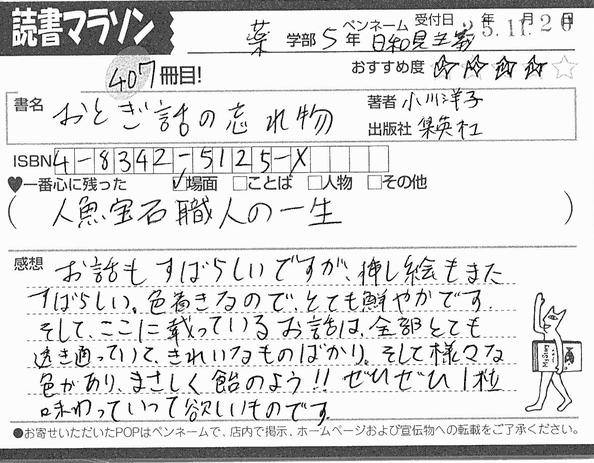 読書マラソン
薬 学部 5 年 ペンネーム 日和見主義 受付日 年 月 日 5.11.26
407 冊目! おすすめ度 ☆☆☆☆☆
書名 おとぎ話の忘れ物 著者 小川洋子
出版社 集英社
ISBN 4-8342-5125-X
♥一番心に残った ☑場面 □ことば □人物 □その他
( 人魚宝石職人の一生 )
感想 お話も すばらしいですが、挿し絵もまた
すばらしい。色着きなので、とても鮮やかです。
そして、ここに載っているお話は、全部とても
透き通っていて、きれいなものばかり。そして様々な
色があり、まさしく飴のよう!! ぜひぜひ1粒
味わっていって欲しいものです。
●お寄せいただいたPOPはペンネームで、店内で掲示、ホームページおよび宣伝物への転載をご了承ください。